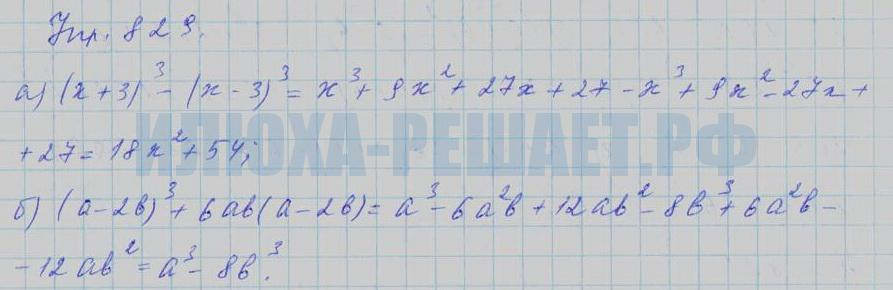 Упр. 829.
а) (x+3)³ - (x-3)³ = x³ + 9x² + 27x + 27 - x³ + 9x² - 27x +
+ 27 = 18x² + 54;
ИЛЮХА-РЕШАЕТ.РФ
б) (a-2b)³ + 6ab(a-2b) = a³ - 6a²b + 12ab² - 8b³ + 6a²b -
- 12ab² = a³ - 8b³.